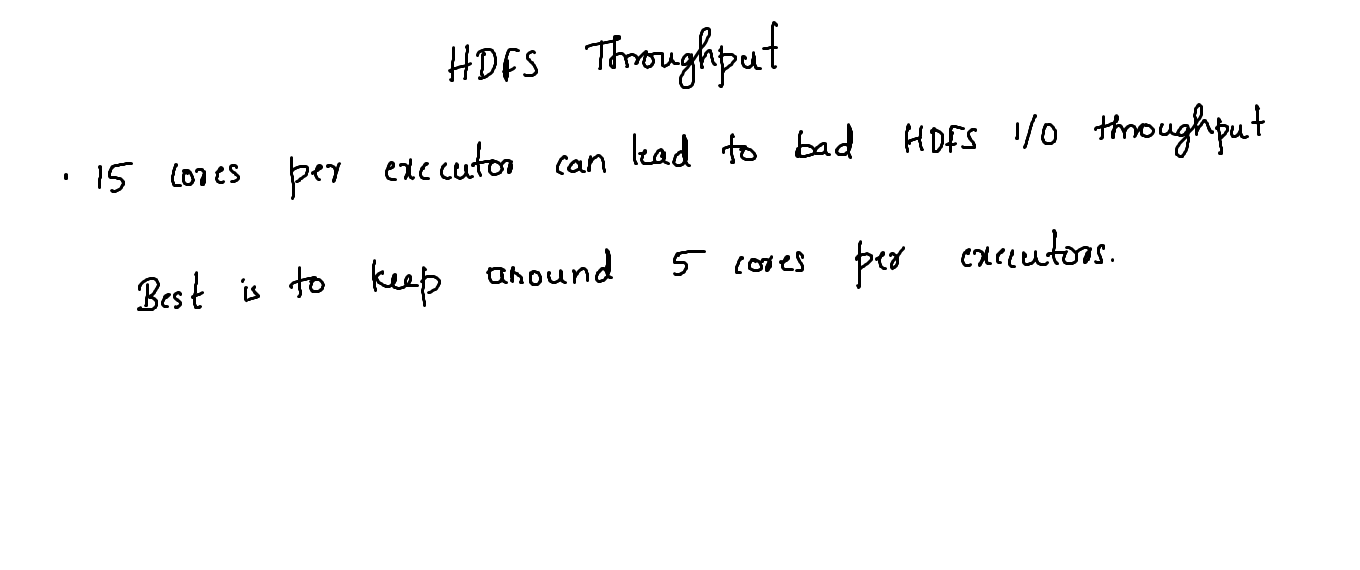 HDFS Throughput
· 15 cores per executor can lead to bad HDFS I/O throughput
Best is to keep around 5 cores per executors.